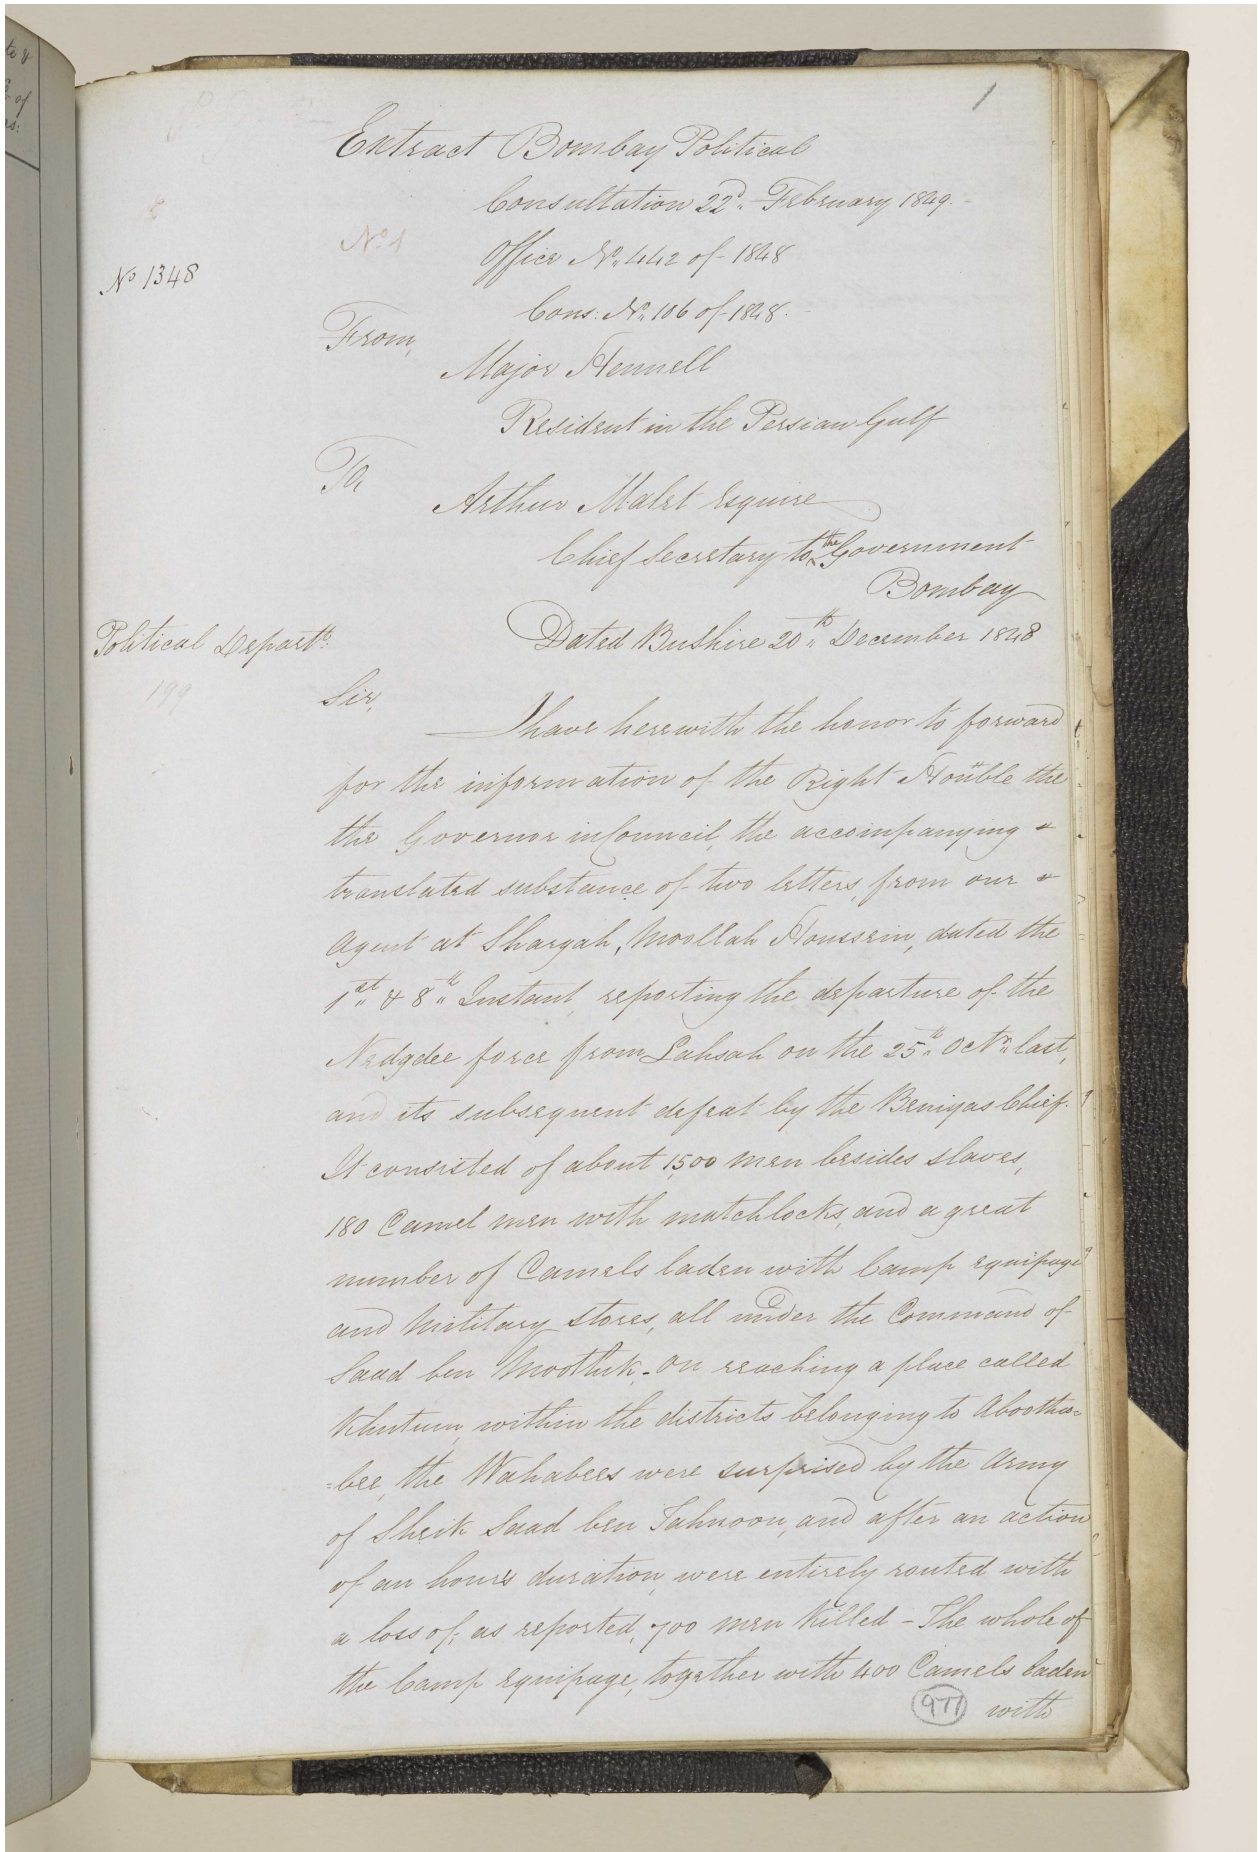 1
Extract Bombay Political
Consultation 22d. February 1849.
No 1
Office No. 442 of 1848
No 1348
Cons: No. 106 of 1848.
From,
Major Hennell
Resident in the Persian Gulf
To,
Arthur Malet Esquire
Chief Secretary to the Government
Bombay
Political Departt:
Dated Bushire 20th. December 1848
199
Sir,
I have herewith the honor to forward
for the information of the Right Honble the
the Governor in Council, the accompanying
translated substance of two letters, from our
Agent at Shargah, Moollah Houssein, dated the
1st. & 8th. Instant, reporting the departure of the
Nedgdee force from Lahsah on the 25th. Octr. last,
and its subsequent defeat by the Beniyas Chief.
It consisted of about 1500 men besides slaves,
180 Camel men with matchlocks, and a great
number of Camels laden with Camp equipage
and Military stores, all under the Command of
Saad ben Moothuk. On reaching a place called
within the districts belonging to Abootha=
=bee, the Wahabees were surprised by the Army
of Sheik Saad ben Tahnoon, and after an action
of an hours duration, were entirely routed with
a loss of, as reported, 700 men killed - The whole of
the Camp equipage, together with 400 Camels laden
977
with